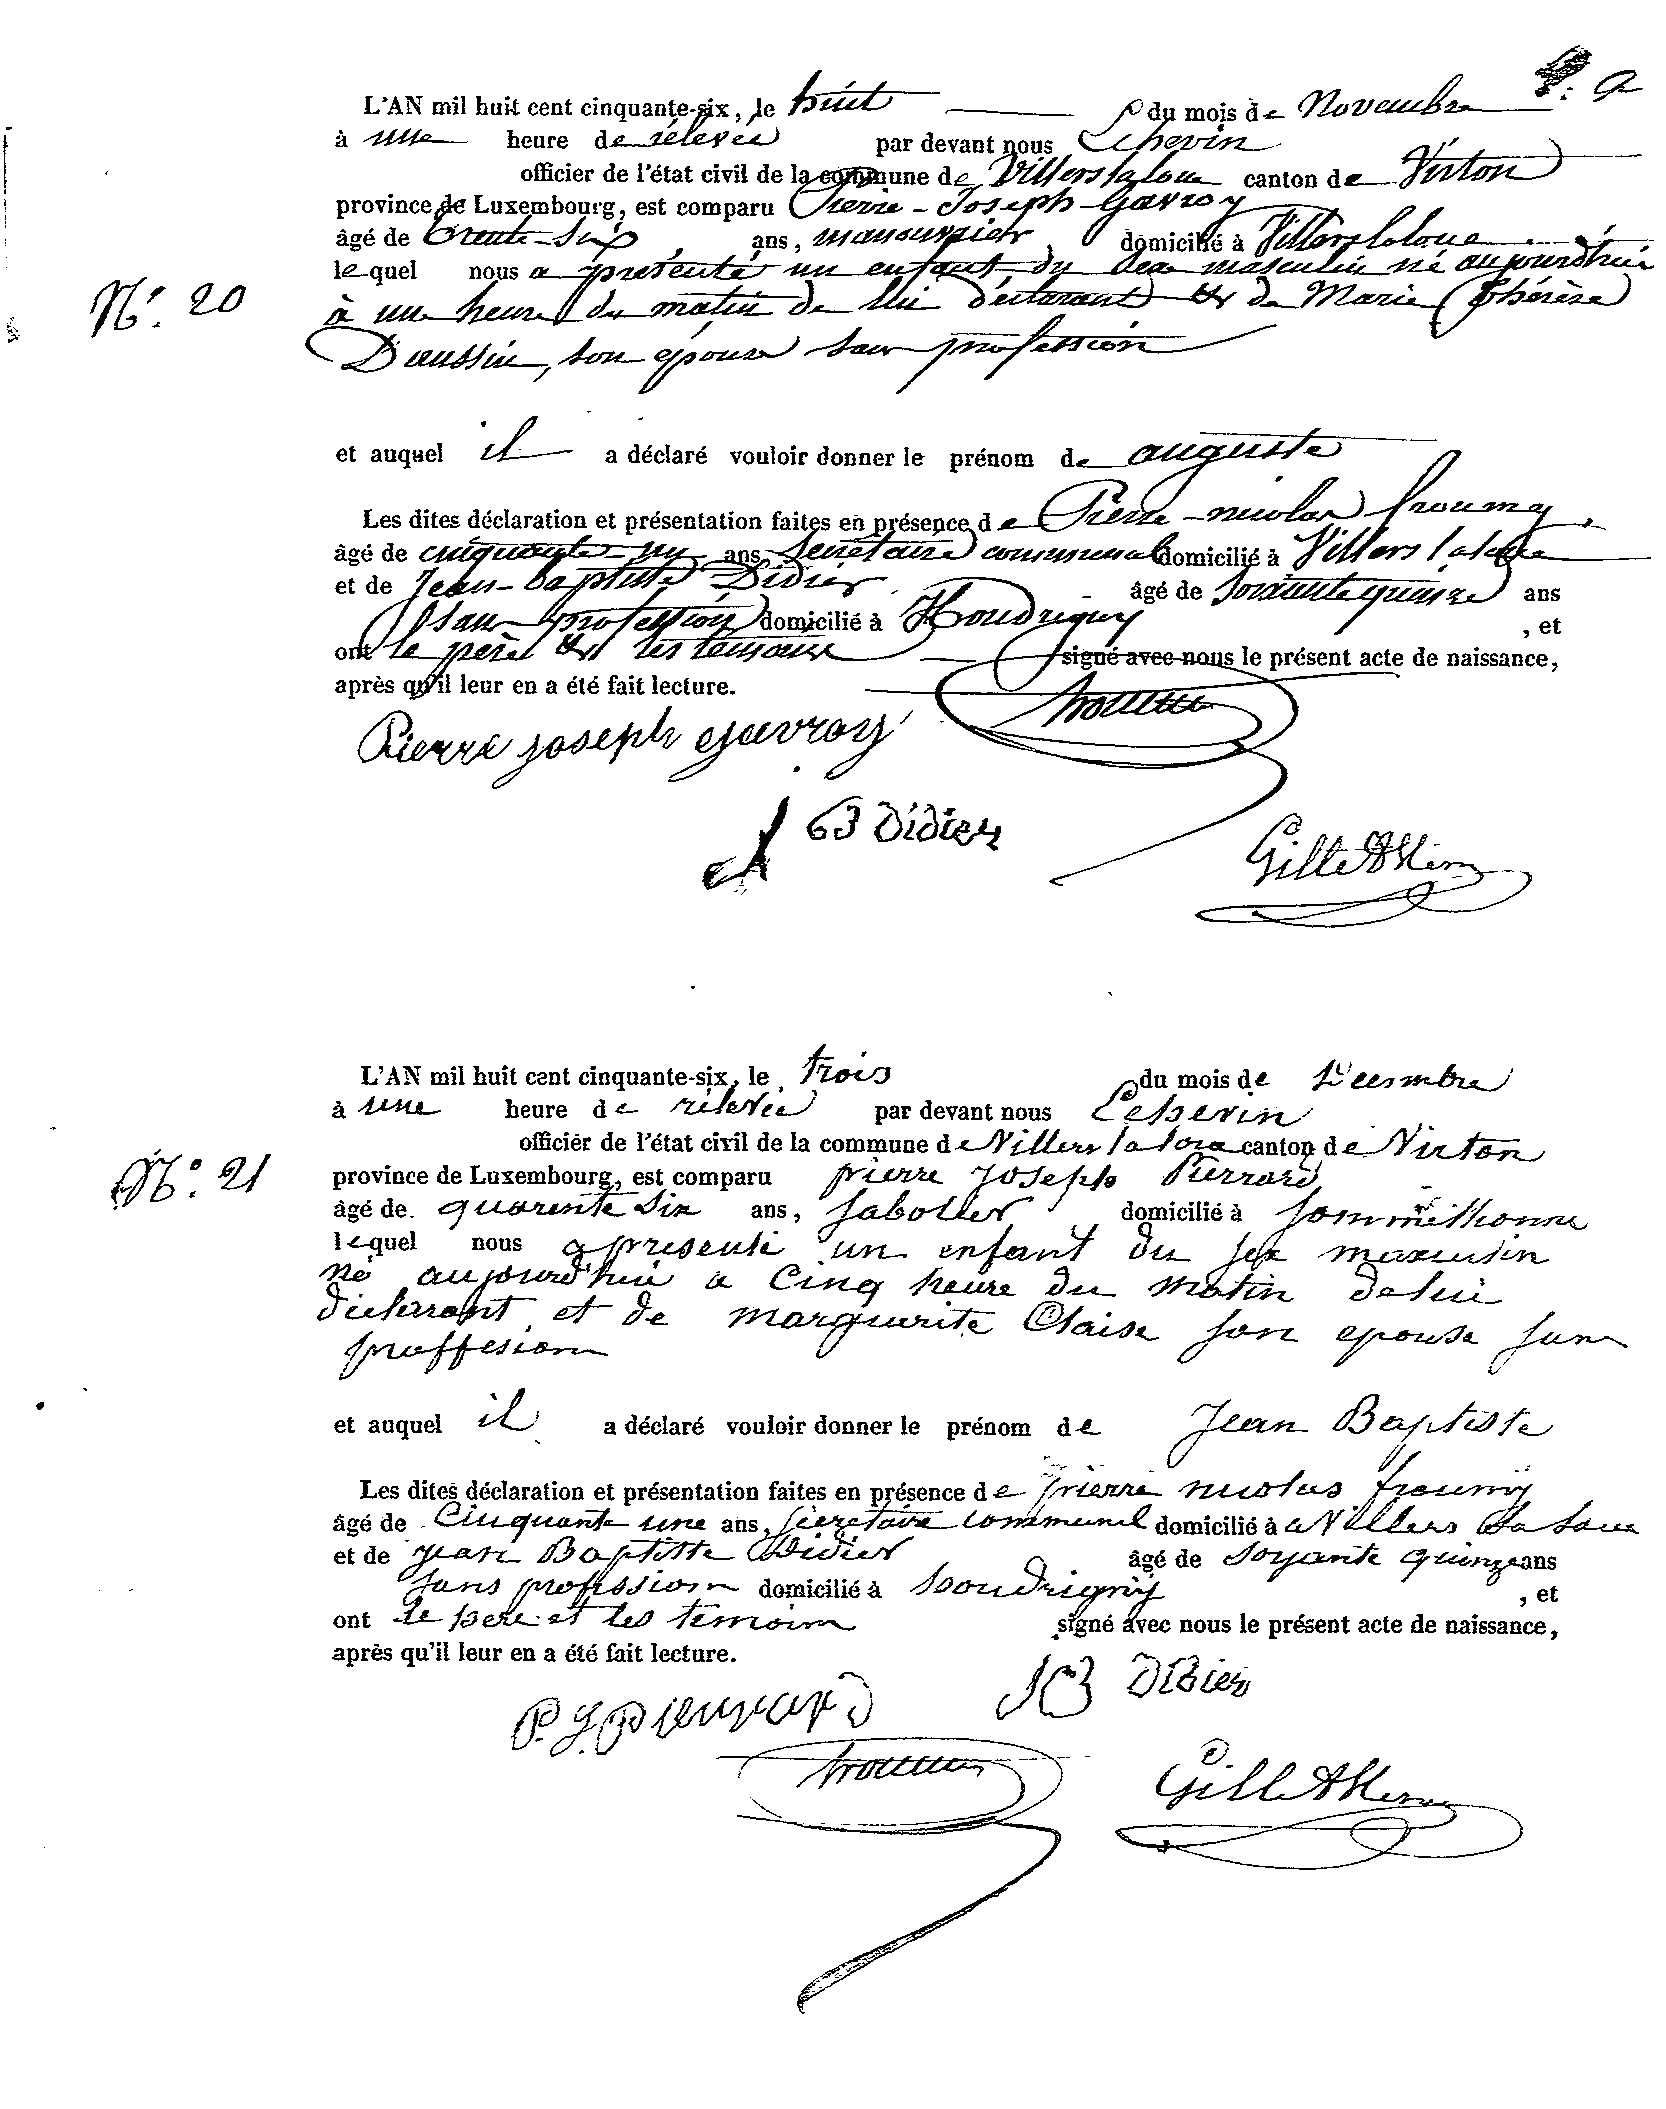 L'AN mil huit cent cinquante-six, le huit du mois de Novembre
à une heure de rélevée par devant nous Echevin
officier de l'état civil de la commune de Villerslaloue canton de Virton
province de Luxembourg, est comparu Pierre-Joseph-Gavroy
âgé de trente-six ans, manouvrier, domicilié à Villerslaloue
lequel nous a présenté un enfant du sexe masculin né aujourd'hui
N°. 20
à une heure du matin de lui déclarant & de Marie Thérèse
Daussin, son épouse sans profession
et auquel il a déclaré vouloir donner le prénom de auguste
Les dites déclaration et présentation faites en présence de Pierre-nicolas froumy,
âgé de cinquante un ans, secrétaire communal domicilié à Villers laloue
et de Jean-Baptiste Didier âgé de soixante quinze ans
sans profession domicilié à Houdrigny , et
ont le père & les témoins signé avec nous le présent acte de naissance,
après qu'il leur en a été fait lecture.
Pierre joseph gavroy
Didier
L'AN mil huit cent cinquante-six, le trois du mois de Decembre
à une heure de rélevée par devant nous Echevin
officier de l'état civil de la commune de Villers laloue canton de Virton
N°. 21
province de Luxembourg, est comparu pierre Joseph Pierrard
âgé de quarente six ans, sabotier domicilié à Sommethonne
lequel nous a presenté un enfant du sex masculin
né aujourd'hui a Cinq heure du matin de lui
diclarant et de marguerite Claise son epouse sans
proffesion
et auquel il a déclaré vouloir donner le prénom de Jean Baptiste
Les dites déclaration et présentation faites en présence de pierre nicolas froumy
âgé de Cinquante une ans, secretaire communal domicilié à Villers la loue
et de jean Baptiste Didier âgé de soyante quinze ans
sans profession domicilié à houdrigny , et
ont le pere et les temoins signé avec nous le présent acte de naissance,
après qu'il leur en a été fait lecture.
P. J. Pierrard JB Didier